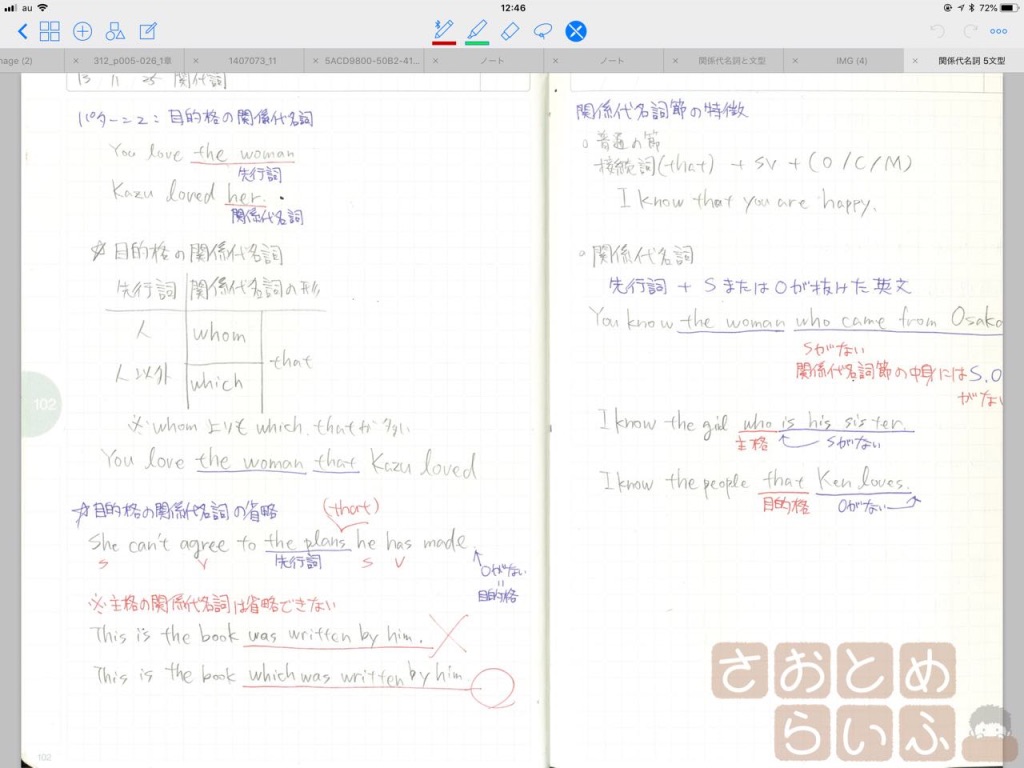 au
12:46
72%
mage (2)
312_p005-026_1章
1407073_11
5ACD9800-50B2-41...
ノート
ノート
関係代名詞と文型
IMG (4)
関係代名詞 5文型
13 11 25 関代詞
パターン2：目的格の関係代名詞
You love the woman
先行詞
Kazu loved her.
関係代名詞
☆目的格の関係代名詞
先行詞 関係代名詞の形
人 whom
that
人以外 which
※whomよりもwhich、thatが多い
You love the woman that Kazu loved
☆目的格の関係代名詞の省略
(that)
She can't agree to the plans he has made
S V 先行詞 S V
Oがない
=
目的格
※主格の関係代名詞は省略できない
This is the book was written by him.
This is the book which was written by him.
102
102
関係代名詞節の特徴
○普通の節
接続詞(that) + SV + (O/C/M)
I know that you are happy.
○関係代名詞
先行詞 + SまたはOが抜けた英文
You know the woman who came from Osaka
Sがない
関係代名詞節の中身にはS.O
がない
I know the girl who is his sister.
主格 Sがない
I know the people that Ken loves.
目的格 Oがない
さおとめ
らいふ